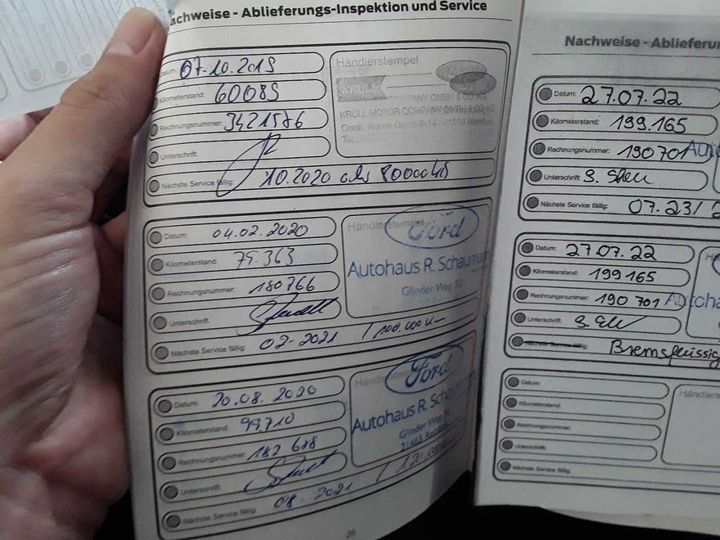 achweise - Ablieferungs-Inspektion und Service
Datum: 07.10.2019
Kilometerstand: 60089
Rechnungsnummer: 3421586
Unterschrift:
Nächste Service fällig: 10.2020 oder 80000
Händlerstempel
KRÜLL
KRÜLL MOTOR COMPANY GMBH & CO KG
Datum: 04.02.2020
Kilometerstand: 79.363
Rechnungsnummer: 180766
Unterschrift:
Nächste Service fällig: 02-2021 / 100.000 Km
Händlerstempel
Ford
Autohaus R. Schaumann
Glinder Weg
Datum: 20.08.2020
Kilometerstand: 99710
Rechnungsnummer: 182 678
Unterschrift:
Nächste Service fällig: 08.2021 / 120.000
Ford
Autohaus R. Schaum
Glinder Weg
26
Nachweise - Ablieferun
Datum: 27.07.22
Kilometerstand: 199.165
Rechnungsnummer: 190 701
Unterschrift:
Nächste Service fällig: 07.23/2
Datum: 27.07.22
Kilometerstand: 199 165
Rechnungsnummer: 190 701
Unterschrift:
Nächste Service fällig: Bremsflüssig
Datum:
Kilometerstand:
Rechnungsnummer:
Unterschrift:
Nächste Service fällig:
Händlerst